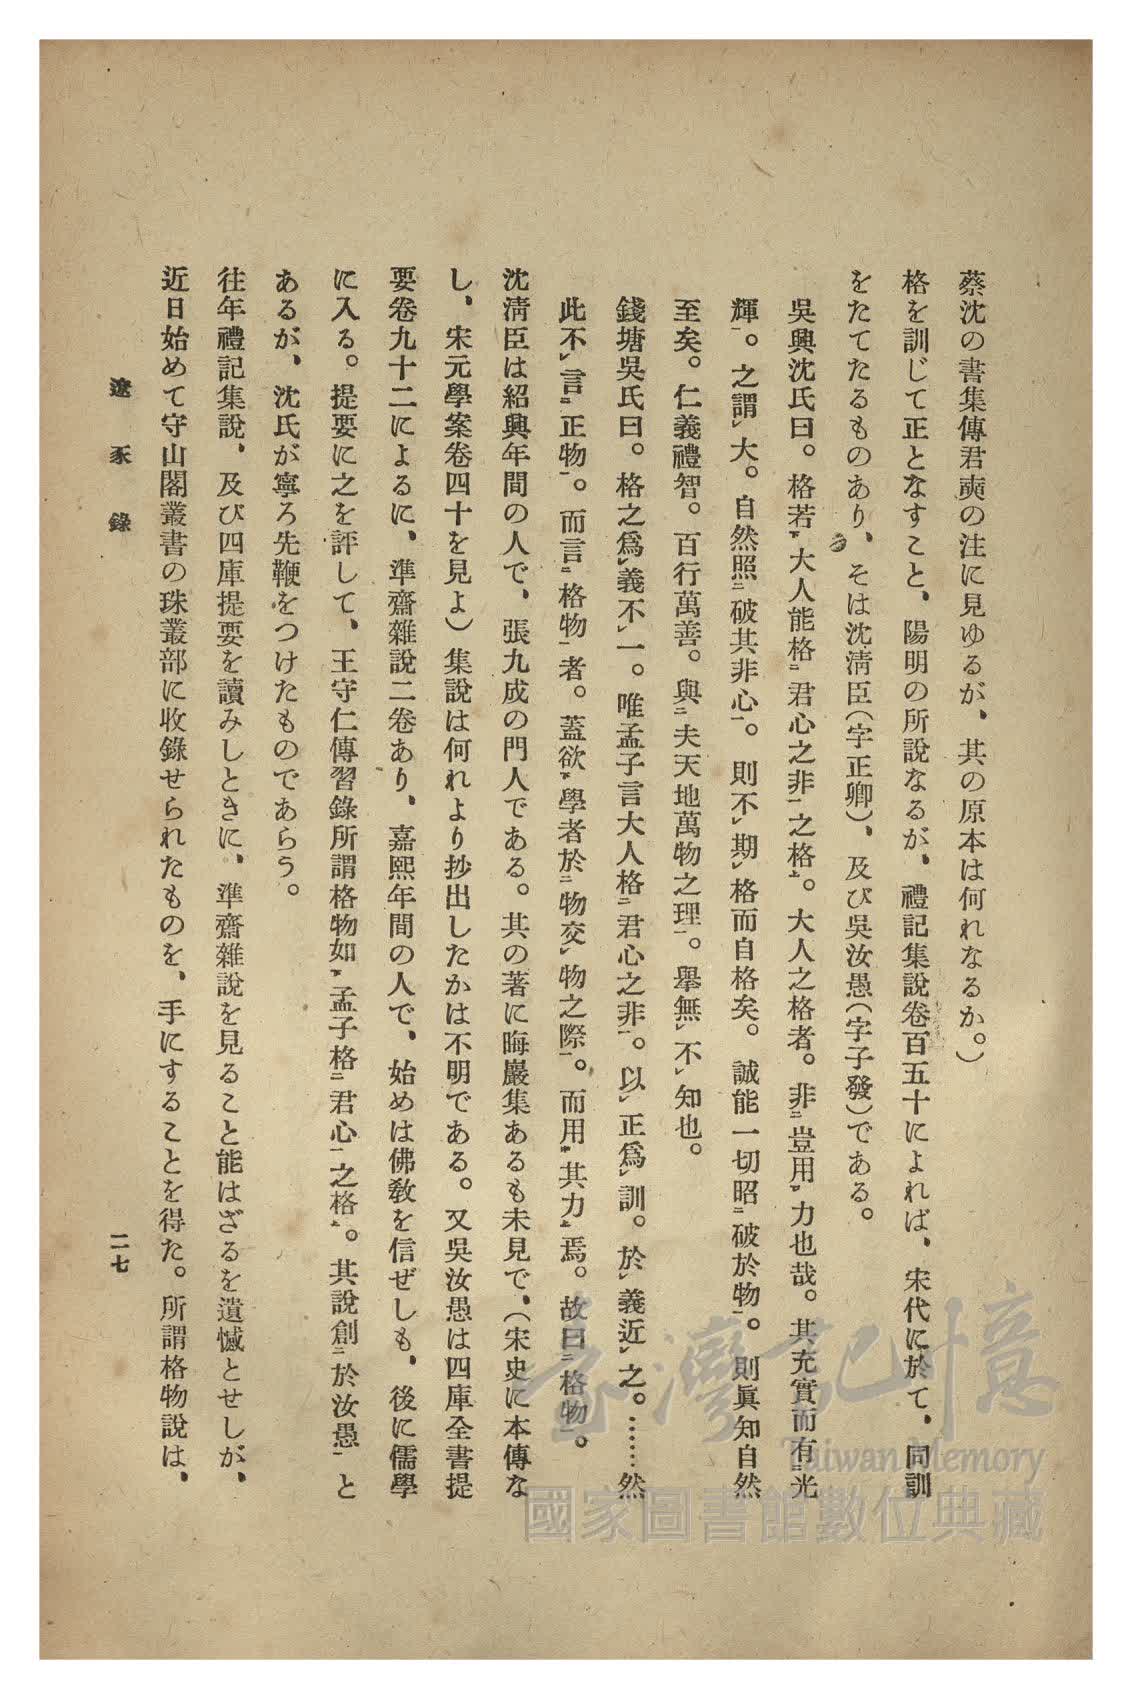 蔡沈の書集傳君奭の注に見ゆるが、其の原本は何れなるか。)
格を訓じて正となすこと、陽明の所說なるが、禮記集說卷百五十によれば、宋代に於て、同訓
をたてたるものあり、そは沈淸臣(字正卿)、及び吳汝愚(字子發)である。
吳興沈氏曰。格若㆘大人能格㆓君心之非㆒之格㆖。大人之格者。非㆔豈用㆑力也哉。其充實而有㆓光
輝㆒。之謂㆑大。自然照㆓破其非心㆒。則不㆑期㆑格而自格矣。誠能一切昭㆓破於物㆒。則眞知自然
至矣。仁義禮智。百行萬善。與㆓夫天地萬物之理㆒。擧無㆑不㆑知也。
錢塘吳氏曰。格之爲㆑義不㆑一。唯孟子言大人格㆓君心之非㆒。以㆑正爲㆑訓。於㆑義近㆑之。……然
此不㆑言㆓正物㆒。而言㆓格物㆒者。蓋欲㆘學者於㆓物交㆑物之際㆒。而用㆗其力㆖焉。故曰㆓格物㆒。
沈淸臣は紹興年間の人で、張九成の門人である。其の著に晦巖集あるも未見で、(宋史に本傳な
し、宋元學案卷四十を見よ)集說は何れより抄出したかは不明である。又吳汝愚は四庫全書提
要卷九十二によるに、準齋雜說二卷あり、嘉熙年間の人で、始めは佛敎を信ぜしも、後に儒學
に入る。提要に之を評して、王守仁傳習錄所謂格物如㆘孟子格㆓君心㆒之格㆖。其說創㆓於汝愚㆒と
あるが、沈氏が寧ろ先鞭をつけたものであらう。
往年禮記集說、及び四庫提要を讀みしときに、準齋雜說を見ること能はざるを遺憾とせしが、
近日始めて守山閣叢書の珠叢部に收錄せられたものを、手にすることを得た。所謂格物說は、
遼豕錄
二七
臺灣記憶
Taiwan Memory
國家圖書館數位典藏